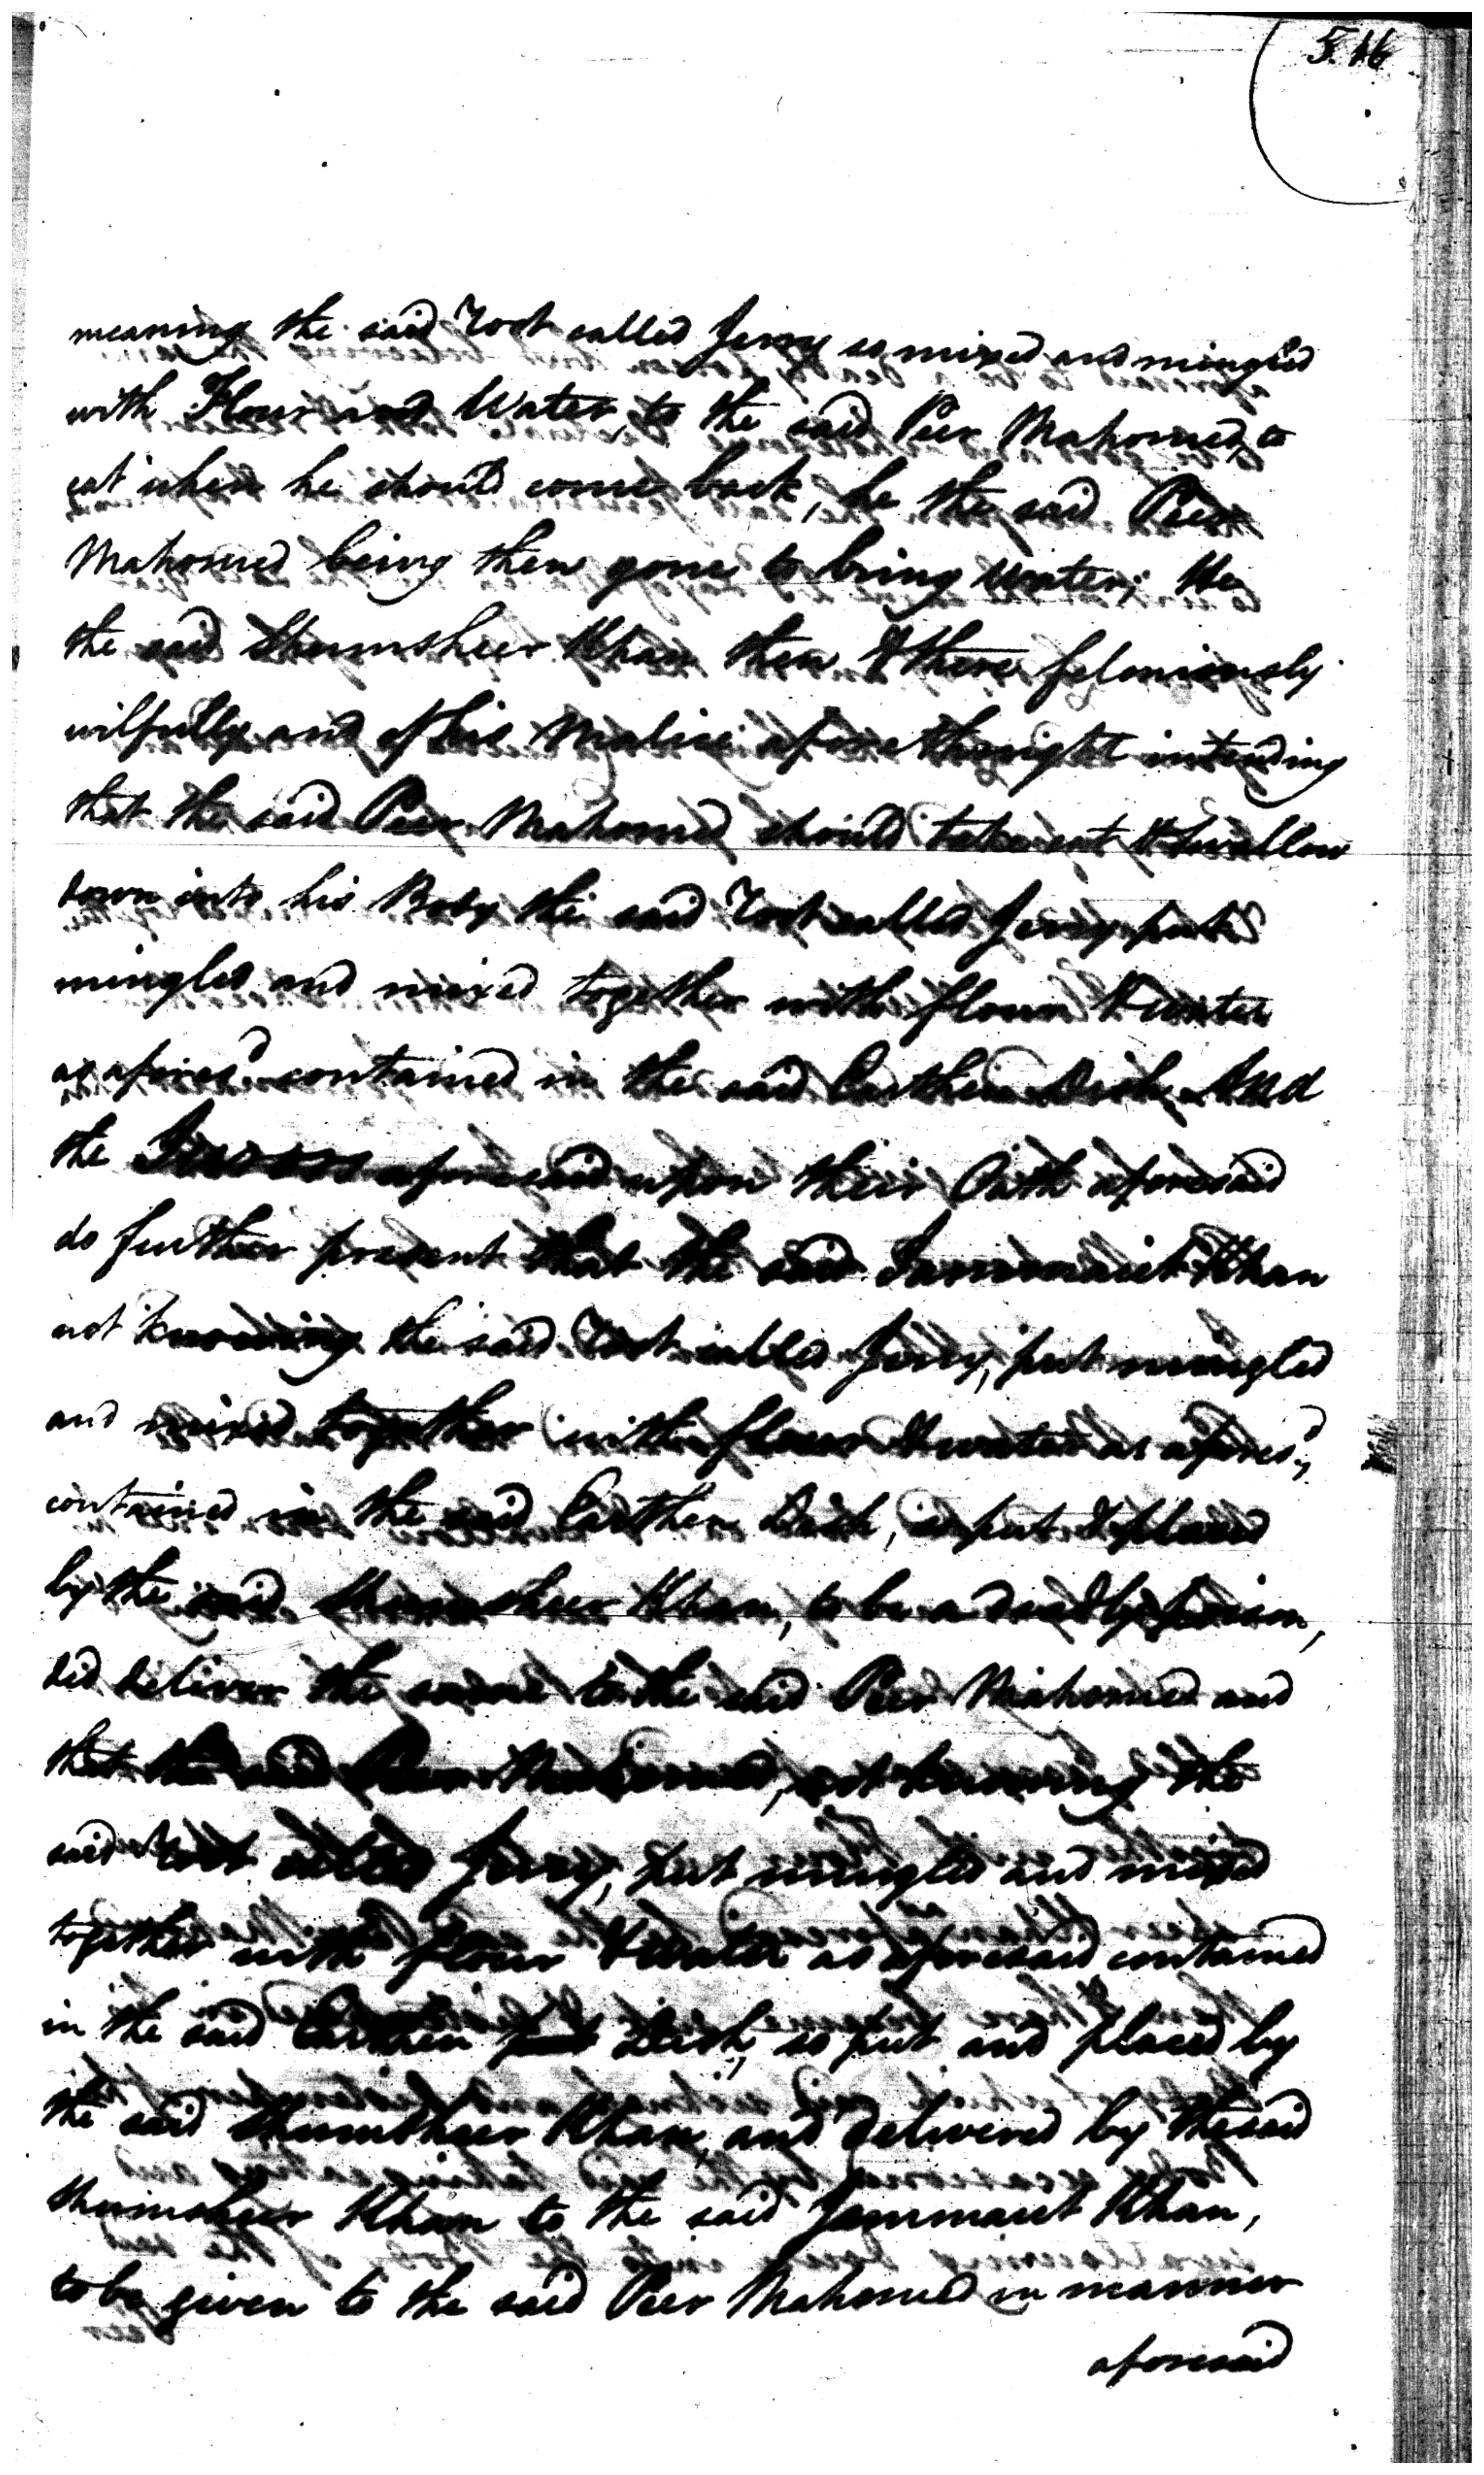 5.16
meaning the said root called Jerry so mixed and mingled
with Flour and Water, to the said Peer Mahomed, to
eat when he should come back, he the said Peer
Mahomed being then gone to bring water; He
the said Shumsheer Khan then & there feloniously
wilfully and of his Malice aforethought intending
that the said Peer Mahomed should take eat & swallow
down into his Body the said root called Jerry put
mingled and mixed together with flour & water
as afores.d contained in the said Earthen Dish, And
the Jurors aforesaid upon their Oath aforesaid
do further present that the said Jammaiet Khan
not knowing the said root called Jerry, put mingled
and mixed together with flour & water as afores.d,
contained in the said Earthen Dish, so put & placed
by the said Shumsheer Khan, to be a deadly poison,
did deliver the same to the said Peer Mahomed and
that the said Peer Mahomed, not knowing the
said root called Jerry, put mingled and mixed
together with flour & water as aforesaid contained
in the said Earthen Dish, so put and placed by
the said Shumsheer Khan, and delivered by the said
Shumsheer Khan to the said Jammaiet Khan,
to be given to the said Peer Mahomed in manner
aforesaid